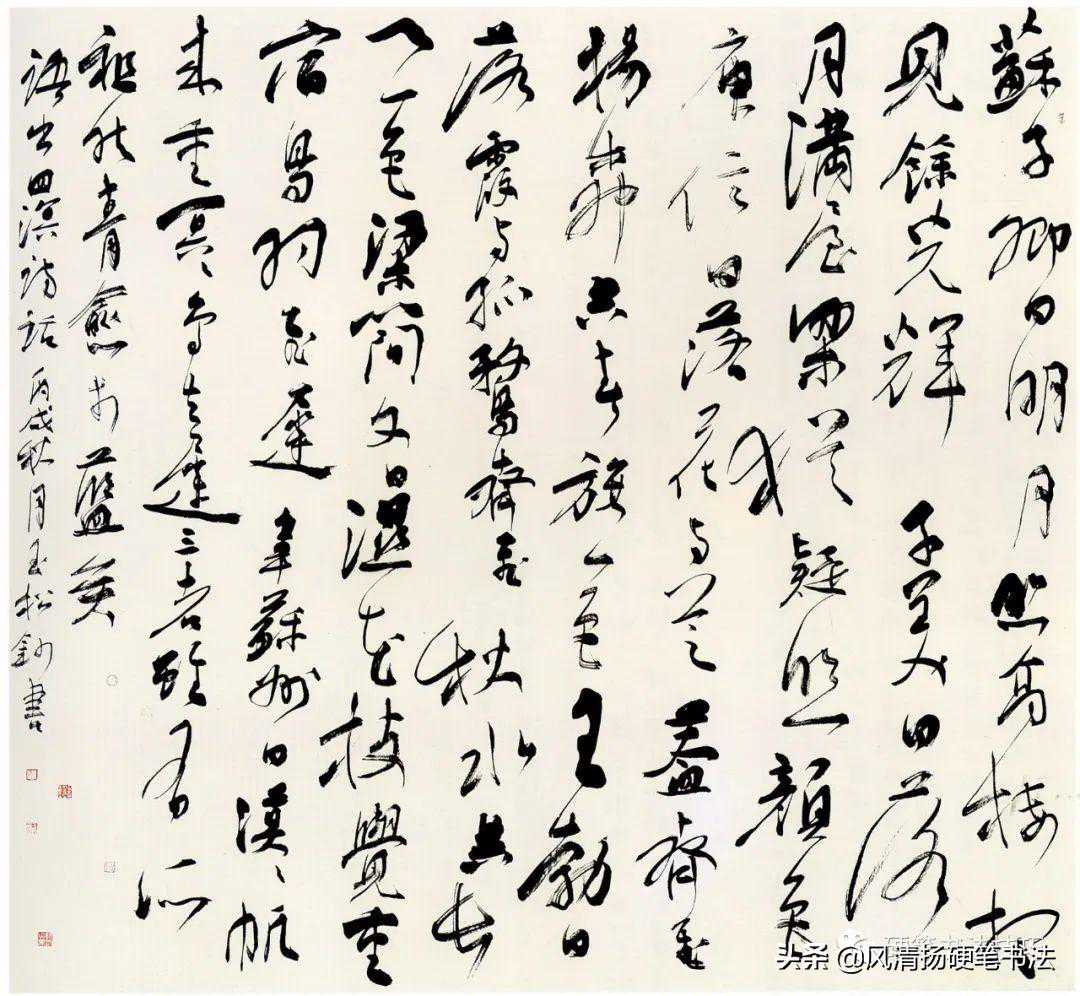 蘇子卿曰明月照高樓想
見餘光輝子美曰落
月滿屋梁猶疑照顏色
庾信曰落花與芝蓋齊飛
楊柳共春旗一色王勃曰
落霞與孤鶩齊飛秋水共長
天一色梁簡文曰濕花枝覺重
宿鳥羽飛遲韋蘇州曰漠〻帆
來重冥〻鳥去遲三者雖有所
祖然青愈於藍矣
語出四溟詩話丙戌秋月松釗書
头条 @风清扬硬笔书法